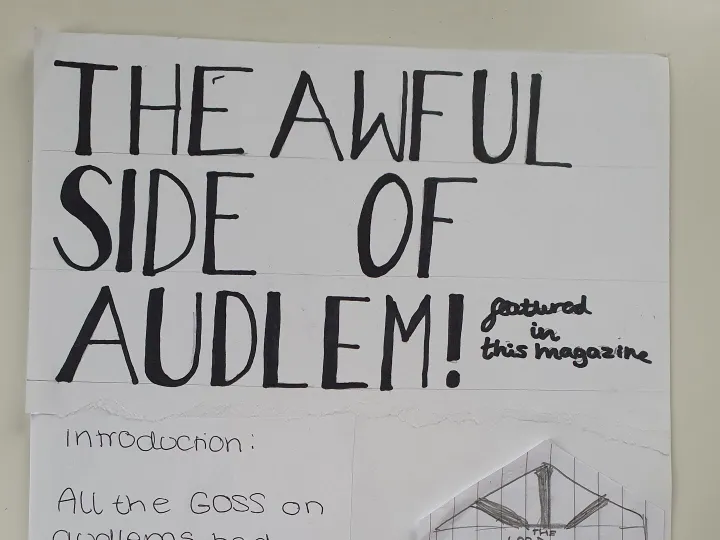 THE AWFUL
SIDE OF
AUDLEM!
featured
in
this magazine
introduction:
All the GOSS on
audlems bad
THE
LORD